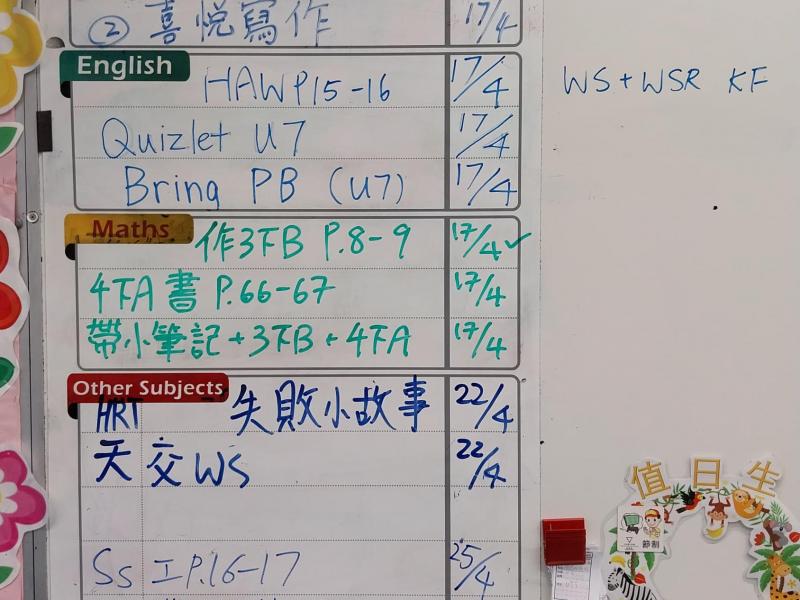 ② 喜悅寫作 17/4
English
HAW P15-16 17/4
WS + WSR KF
Quizlet U7 17/4
Bring PB (U7) 17/4
Maths
作3下B P.8-9 17/4 ✓
4下A 書 P.66-67 17/4
帶小筆記+3下B+4下A 17/4
Other Subjects
HRT 失敗小故事 22/4
天交WS 22/4
值日生
節制
Ss 工P.16-17 25/4